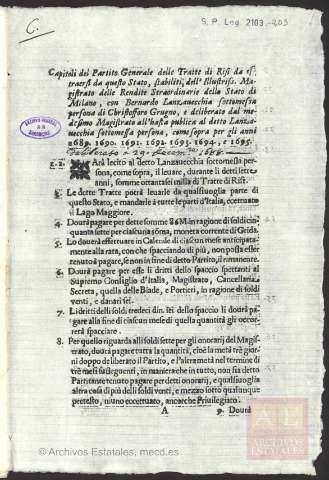 C.
S. P. Leg 2103-203
Capitoli del Partito Generale delle Tratte di Risi da es-
traersi da questo Stato, stabiliti, dell'Illustriss. Ma-
gistrato delle Rendite Straordinarie dello Stato di
Milano, con Bernardo Lanzauecchia sottomessa
persona di Christofforo Grugno, e deliberato dal me-
desimo Magistrato all'hasta publica al detto Lanza-
uecchia sottomessa persona, come sopra per gli anni
1689. 1690. 1691. 1692. 1693. 1694. e 1695.
1. 2. SArà lecito al detto Lanzauecchia sottomessa per-
sona, come sopra, il leuare, durante li detti sette
anni, somme ottantasei milla di Tratte di Risi.
3. Le dette Tratte potrà leuarle da qualsiuoglia parte di
questo Stato, e mandarle à tutte le parti d'Italia, eccettuato
il Lago Maggiore.
4. Dourà pagare per dette somme 86M in ragione di soldi cin-
quanta sette per ciascuna sôma, moneta corrente di Grida.
5. Lo dourà effettuare in Calende di ciascun mese anticipata-
mente alla rata, con che spacciando di più, non possa esse-
re tenuto à pagare, se non in fine di detto Partito, il rimanente.
6. Dourà pagare per esse li dritti dello spaccio spettanti al
Supremo Consiglio d'Italia, Magistrato, Cancellaria
Secreta, quella delle Biade, e Portieri, in ragione di soldi
venti, e danari sei.
7. Li dritti delli soldi tredeci din. sei dello spaccio li dourà pa-
gare alla fine di ciascun mese di quella quantità gli occor-
rerà spacciare.
8. Per quello riguarda alli soldi sette per gli onorarij del Magis-
trato, dourà pagare tutta la quantità, cioè la metà trè gior-
ni doppo deliberato il Partito, e l'altra metà nel termine di
trè mesi susseguenti, in maniera che in tutto, non sia detto
Partitante tenuto pagare per detti onorarij, e qualsiuoglia
altra cosa di più delli soldi venti, e mezzo sotto qualunque
pretesto, niuno eccettuato, ancorche Priuilegiato.
A 9. Dourà
© Archivos Estatales, mecd.es
ARCHIVOS
ESTATALES